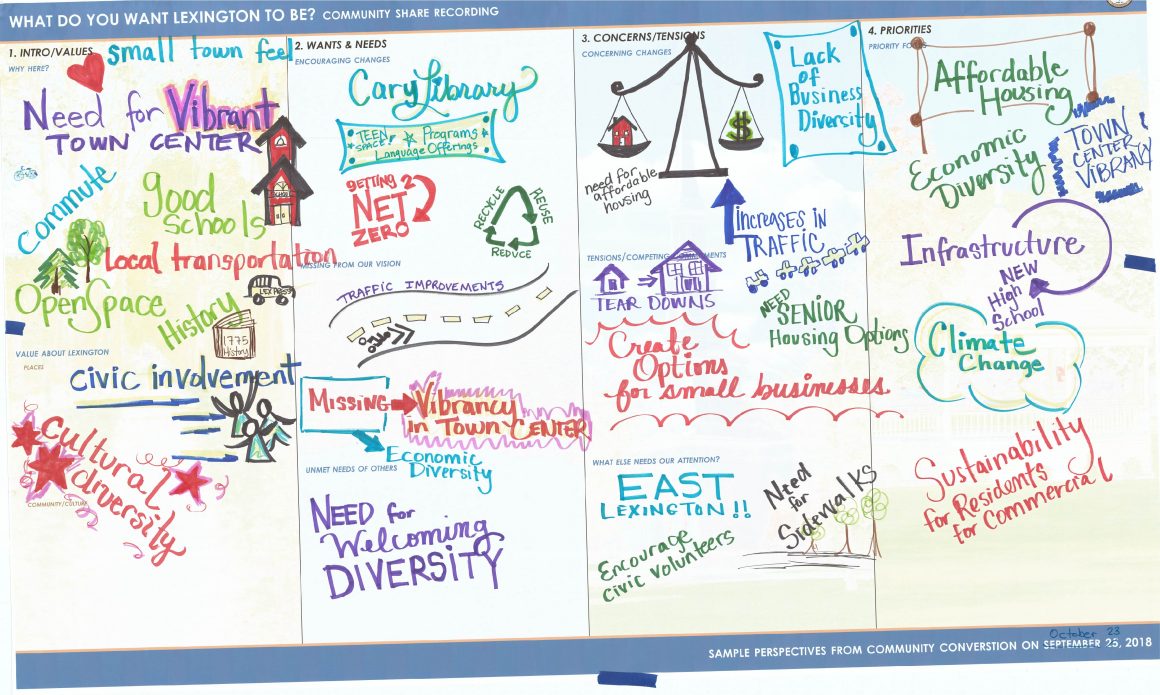 WHAT DO YOU WANT LEXINGTON TO BE? COMMUNITY SHARE RECORDING
1. INTRO/VALUES
WHY HERE?
small town feel
Need for Vibrant
TOWN CENTER
Commute
good
schools
SCHOOL
Local transportation
LEXPRESS
Open Space
History
1775
History
VALUE ABOUT LEXINGTON
PLACES
Civic involvement
Cultural
diversity
COMMUNITY/CULTURE
2. WANTS & NEEDS
ENCOURAGING CHANGES
Cary Library
TEEN
SPACE!
Programs
Language Offerings
GETTING 2
NET
ZERO
RECYCLE
REUSE
REDUCE
MISSING FROM OUR VISION
TRAFFIC IMPROVEMENTS
MISSING
Vibrancy
in TOWN CENTER
Economic
Diversity
UNMET NEEDS OF OTHERS
NEED for
Welcoming
DIVERSITY
3. CONCERNS/TENSIONS
CONCERNING CHANGES
$
need for
affordable
housing
Lack
of
Business
Diversity
INCREASES IN
TRAFFIC
TENSIONS/COMPETING COMMITMENTS
TEAR DOWNS
NEED
SENIOR
Housing Options
Create
Options
for small businesses
WHAT ELSE NEEDS OUR ATTENTION?
EAST
LEXINGTON!!
Need
for
Sidewalks
Encourage
civic volunteers
4. PRIORITIES
PRIORITY FOCUS
Affordable
Housing
Economic
Diversity
TOWN
CENTER
VIBRANCY
Infrastructure
NEW
High
School
Climate
Change
Sustainability
for Residents
for Commercial
October 23
SAMPLE PERSPECTIVES FROM COMMUNITY CONVERSTION ON SEPTEMBER 25, 2018